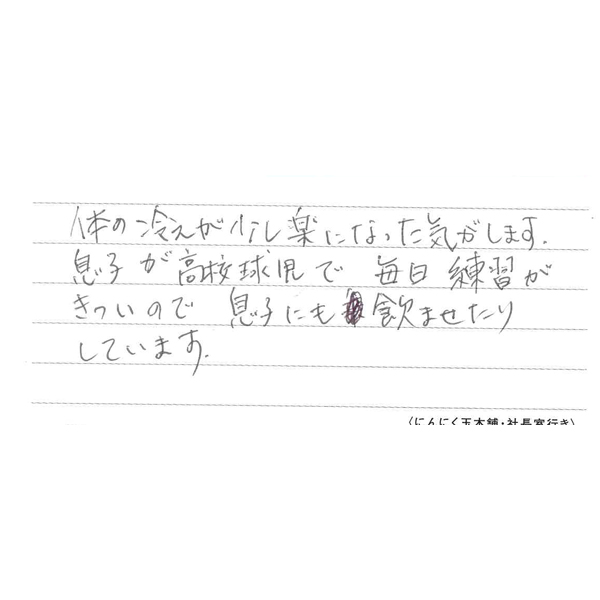 体の冷えが少し楽になった気がします.
息子が高校球児で 毎日練習が
きついので 息子にも飲ませたり
しています.
(にんにく玉本舗・社長室行き)